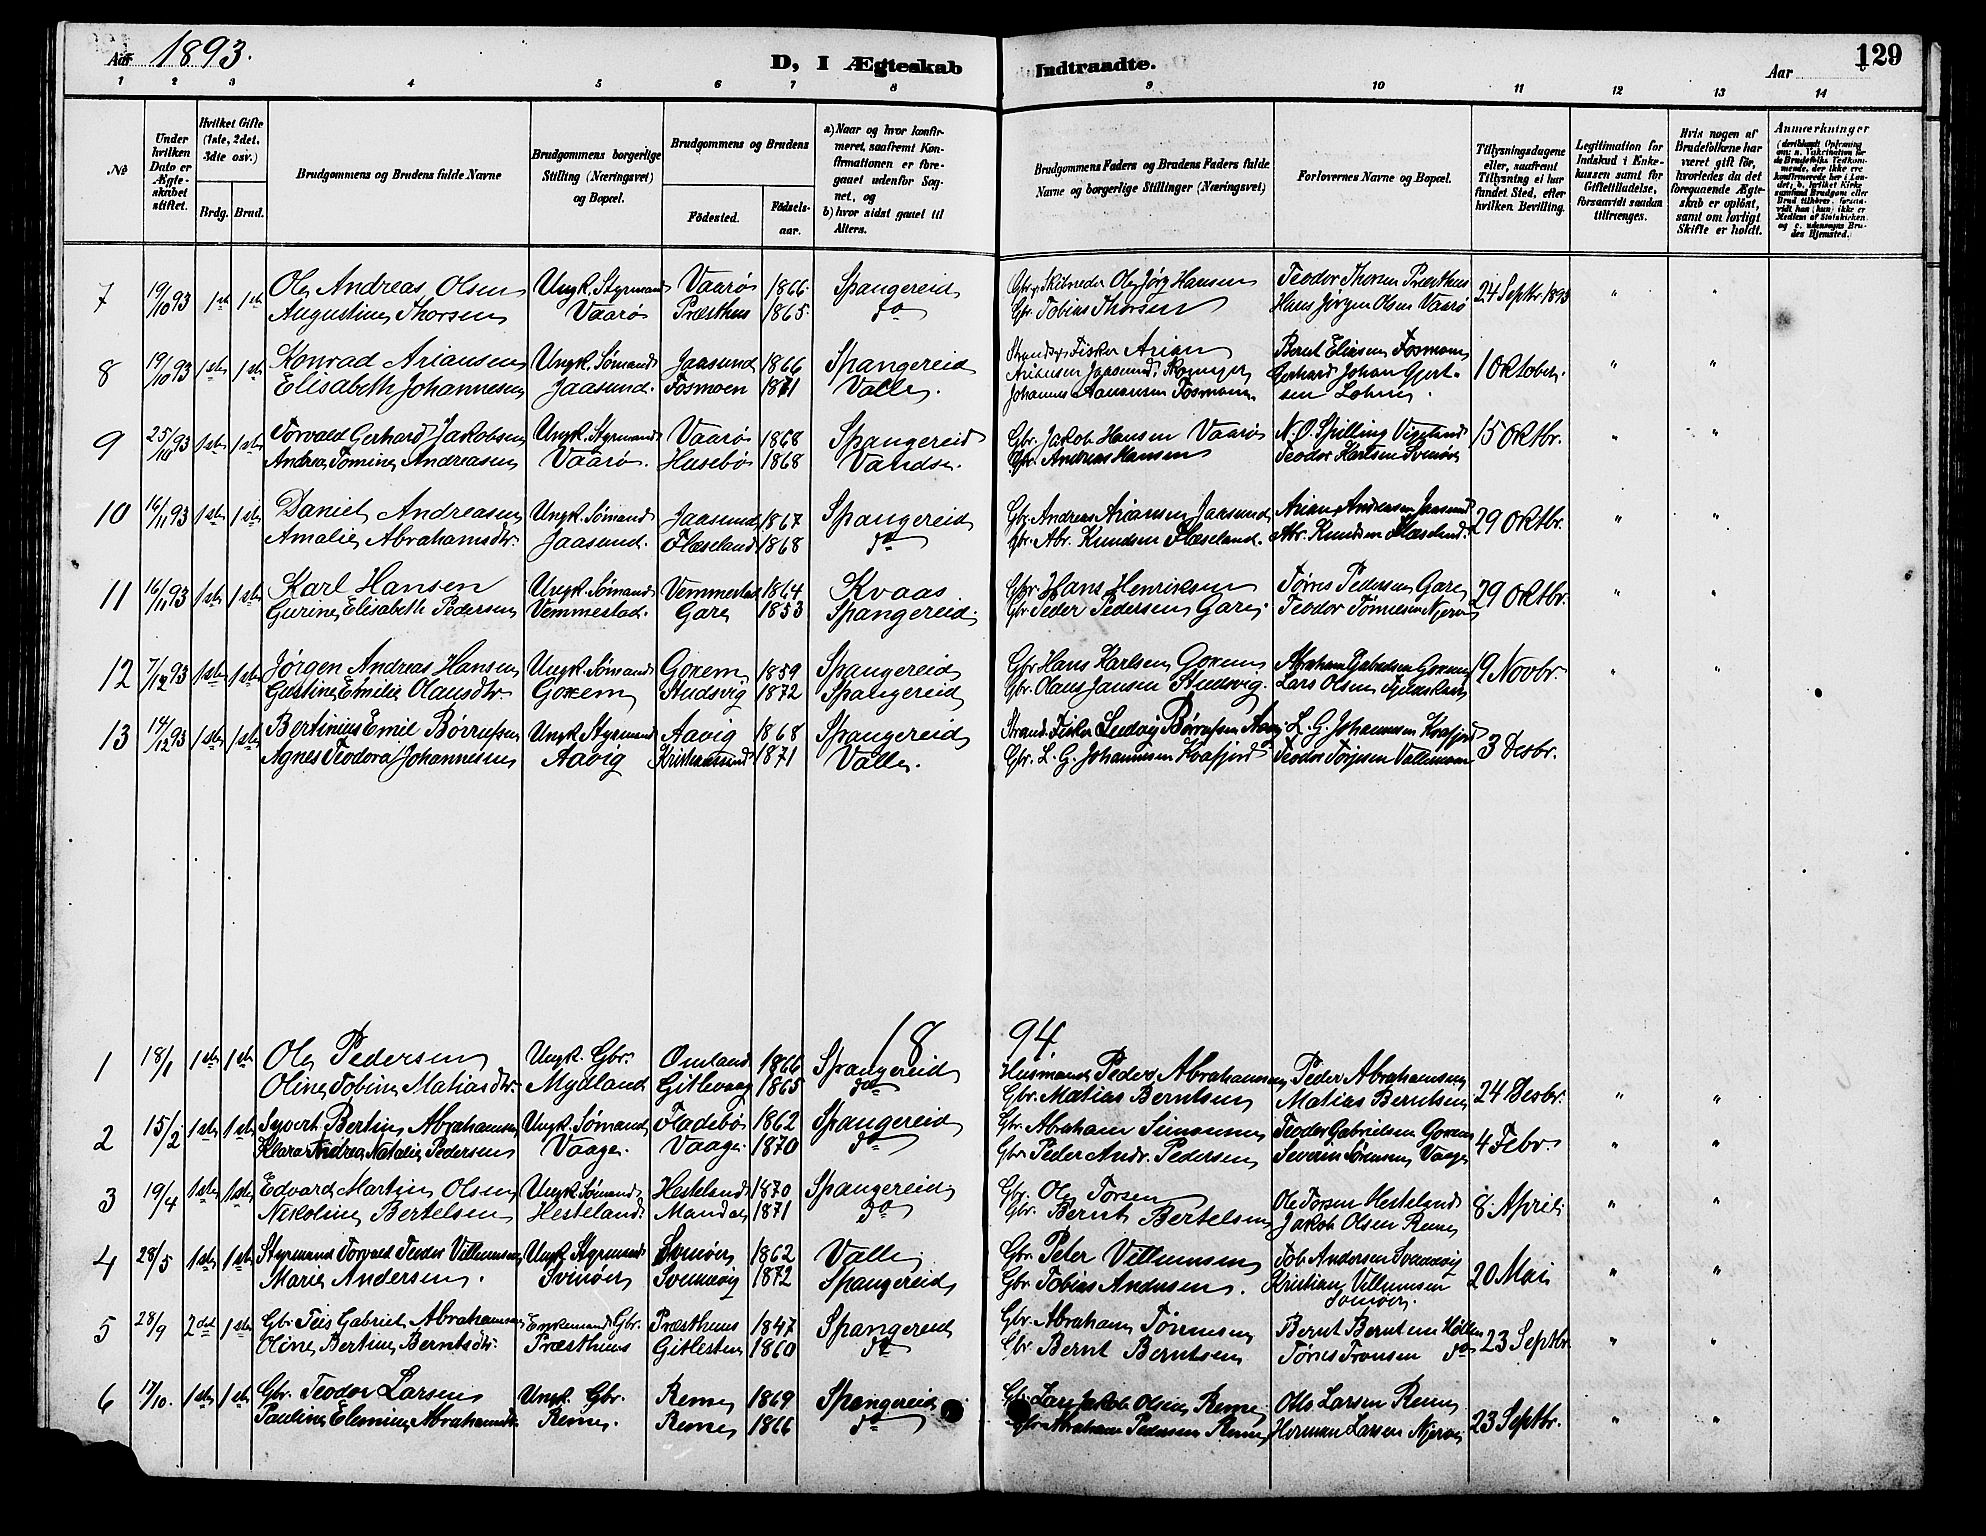 Aar 1893.
D, I Ægteskab Indtraadte.
Aar
129
1 2 3 4 5 6 7 8 9 10 11 12 13 14
№
Under hvilken Dato er Ægteskabet stiftet.
Hvilket Gifte (1ste, 2det, 3dte osv.)
Brdg. Brud.
Brudgommens og Brudens fulde Navne
Brudgommens borgerlige Stilling (Næringsvei) og Bopæl.
Brudgommens og Brudens
Fødested.
Fødselsaar.
a) Naar og hvor konfirmeret, saafremt Konfirmationen er foregaaet udenfor Sognet, og
b) hvor sidst gaaet til Alters.
Brudgommens Faders og Brudens Faders fulde Navne og borgerlige Stillinger (Næringsvei)
Forlovernes Navne og Bopæl.
Tillysningsdagene eller, saafremt Tillysning ei har fundet Sted, efter hvilken Bevilling.
Legitimation for Indskud i Enkekassen samt for Giftetilladelse, forsaavidt saadan tiltrænges.
Hvis nogen af Brudefolkene har været gift før, hvorledes da det foregaaende Ægteskab er opløst, samt om lovligt Skifte er holdt.
Anmærkninger
7 19/10 93 1ste 1ste Ole Andreas Olsen Ungk. Styrmand Vaarø 1866 Spangereid Gbr. Skibreder Ole Jørg Hansen Teodor Thorsen Præsthus 24 Septbr. 1893 " "
Augustine Thorsen Vaarø Præsthus 1865 do Gbr. Tobias Thorsen Hans Jørgen Olsen Vaarø
8 19/10 93 1ste 1ste Konrad Ariansen Ungk. Sømand Jaasund 1866 Spangereid Fisker Arian Bernt Eliasen Fosmoen 1 Oktober. " "
Elisabeth Johannesen Jaasund. Fosmoen 1871 Valle. Ariansen Jaasund. Gerhard Johan Gjert-
Johannes Aanensen Fosmoen sen Lohne.
9 25/10 93 1ste 1ste Torvald Gerhard Jakobsen Ungk. Styrmand Vaarø 1868 Spangereid Gbr. Jakob Hansen Vaarø N. O. Spilling Vigeland 15 Oktbr. " "
Andrea Tomine Andreasen Vaarø. Husebø 1868 Vandse. Gbr. Andreas Hansen Teodor Karlsen Svinør
10 16/11 93 1ste 1ste Daniel Andreasen Ungk. Sømand Jaasund 1867 Spangereid Gbr. Andreas Ariansen Jaasund Arian Andreasen Jaasund 29 Oktbr. " "
Amalie Abrahamsdtr. Jaasund. Flæseland 1868 do Gbr. Abr. Knudsen Flæseland. Abr. Knudsen Flæseland.
11 16/11 93 1ste 1ste Karl Hansen Ungk. Sømand Vemmestad 1864 Kvaas Gbr. Hans Henriksen Tønes Pedersen Gare 29 Oktbr. " "
Gurine Elisabeth Pedersen Vemmestad. Gare 1853 Spangereid. Gbr. Peder Pedersen Gare. Teodor Tønnesen Njerve
12 7/12 93 1ste 1ste Jørgen Andreas Hansen Ungk. Sømand Goxem 1859 Spangereid Gbr. Hans Karlsen Goxem Abraham Gabrielsen Goxem 19 Novbr. " "
Gustine Emilie Olausdtr. Goxem Studsvig 1872 Spangereid Gbr. Olaus Jansen Studsvig. Lars Olsen
13 14/12 93 1ste 1ste Bertinius Emil Børrufsen Ungk. Styrmand Aavig 1868 Spangereid Strand. Fisker Ludvig Børrufsen Aavig L. G. Johannesen Kvafjord 3 Desbr. " "
Agnes Teodora Johannesen Aavig Kristiansund 1871 Valle. Gbr. L. G. Johannesen Kvafjord Teodor Torjusen Vallemoen
1894
1 18/1 1ste 1ste Ole Pedersen Ungk. Gbr. Omland 1866 Spangereid Husmand Peder Abrahamsen Peder Abrahamsen 24 Desbr. " "
Oline Tobine Matiasdtr. Mydland Gitlevaag 1865 do Gbr. Matias Berntsen Matias Berntsen
2 15/2 1ste 1ste Syvert Bertin Abrahamsen Ungk. Sømand Fladebø 1862 Spangereid Gbr. Abraham Simonsen Teodor Gabrielsen Goxem 4 Febr. " "
Klara Andrea Natalie Pedersen Vaage. Vaage 1870 do Gbr. Peder Andr. Pedersen Severin Sørensen Vaage
3 19/4 1ste 1ste Edvard Martin Olsen Ungk. Sømand Hesteland 1870 Spangereid. Gbr. Ole Torsen Ole Torsen Hesteland 8 April. " "
Nikoline Bertelsen Hesteland. Mandal 1871 do Gbr. Bernt Bertelsen Jakob Olsen Reme
4 28/5 1ste 1ste Styrmand Torvald Teodor Villumsen Ungk. Styrmand Svinør 1862 Valle. Gbr. Peter Villumsen Tob. Andersen Svennevig 20 Mai " "
Marie Andersen. Svinør Svennevig 1872 Spangereid Gbr. Tobias Andersen. Kristian Villumsen
Svinør.
5 28/9 2det 1ste Gbr. Teis Gabriel Abrahamsen Enkemand Gbr. Præsthus 1847 Spangereid Gbr. Abraham Tønnesen Bernt Berntsen Hølle 23 Septbr. " "
Oline Bertine Berntsdtr. Præsthuus Gitlesten 1860 do Gbr. Bernt Berntsen Tønes Fransen do
6 17/10. 1ste 1ste Gbr. Teodor Larsen Ungk. Gbr. Reme 1869 Spangereid Gbr. Lars Jakob Olsen Reme Otto Larsen Reme 23 Septbr. " "
Pauline Elemine Abrahamsdtr. Reme. Reme 1866 do Gbr. Abraham Pedersen Reme Herman Larsen Njerve